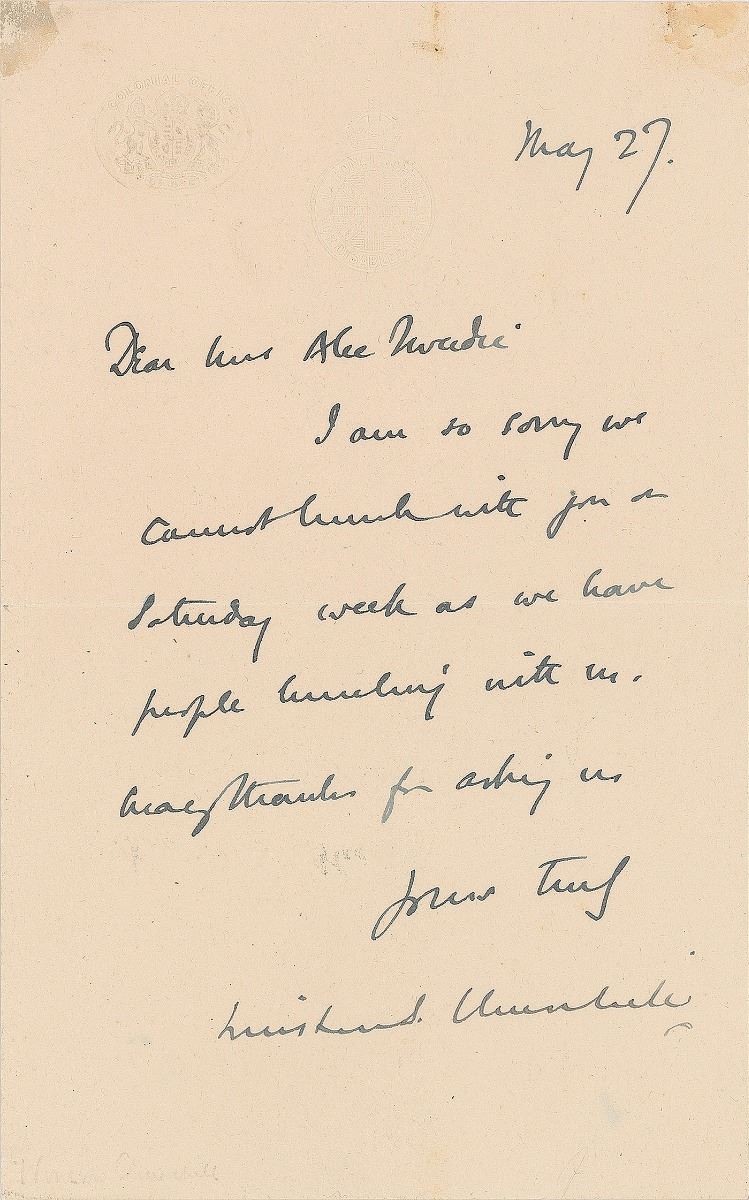 COLONIAL OFFICE
May 27.
Dear Mrs Alec Tweedie
I am so sorry we
cannot lunch with you on
Saturday week as we have
people lunching with us.
Many thanks for asking us
Yours truly
Winston S. Churchill